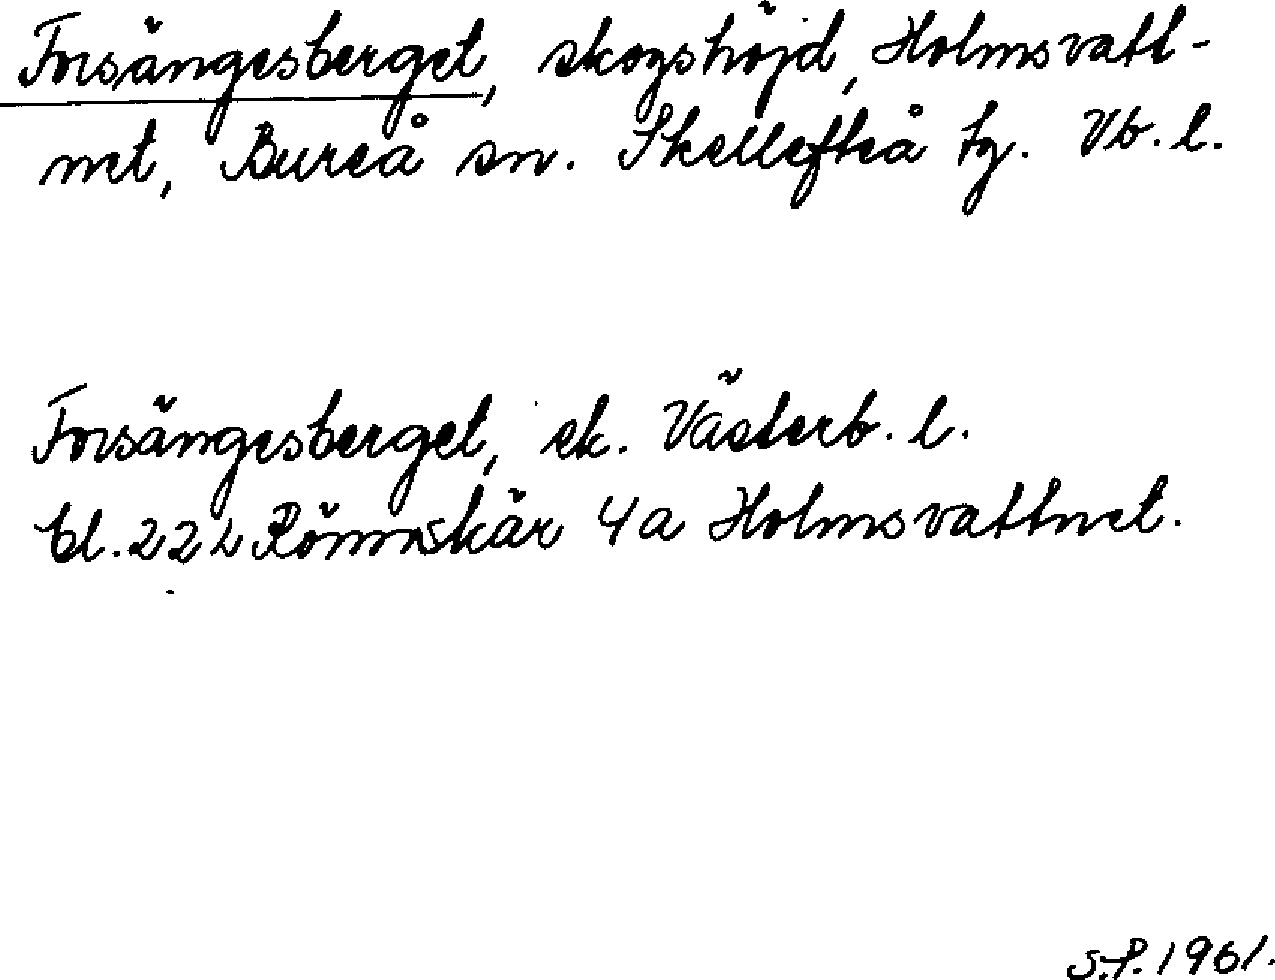 Forsängesberget, skogshöjd, Holmsvatt-
net, Bureå sn. Skellefteå tg. Vb. l.
Forsängesberget, ek. Västerb. l.
bl. 22 L Rönnskär 4a Holmsvattnet.
S.P. 1961.